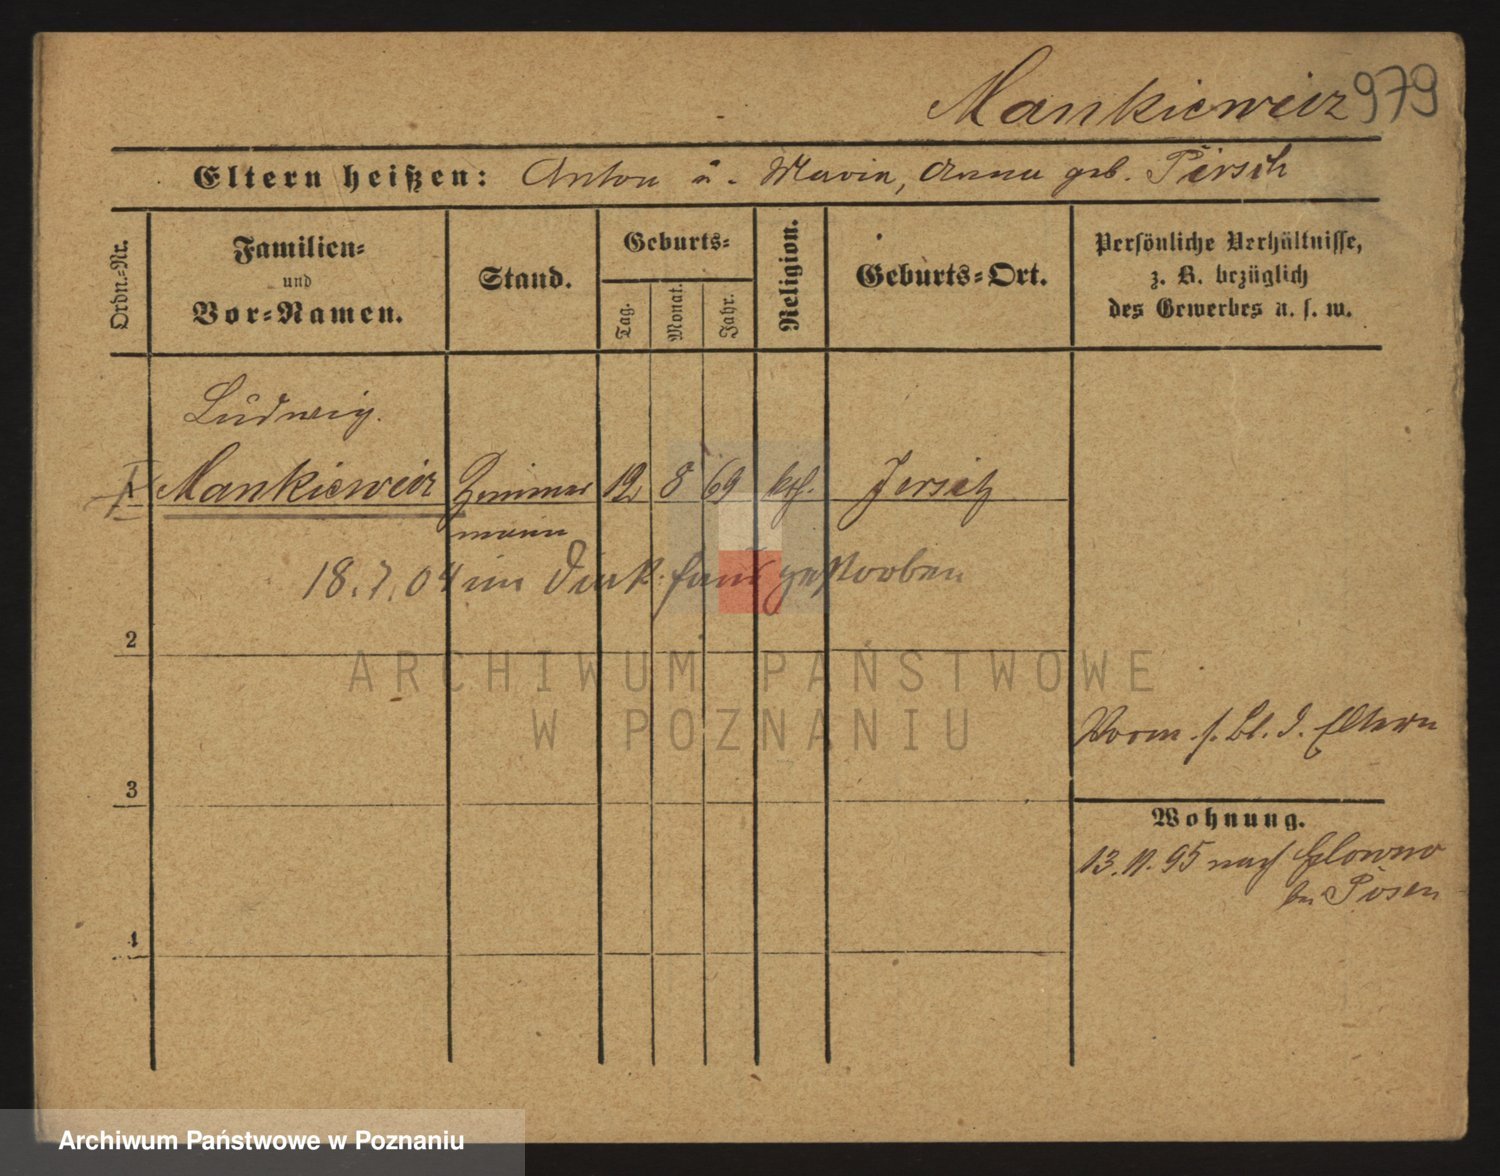 Mankiewicz 979
Eltern heißen: Anton u. Maria, Anna geb. Pirsch
Ordn.-Nr.
Familien-
und
Vor-Namen.
Stand.
Geburts-
Tag.
Monat.
Jahr.
Religion.
Geburts-Ort.
Persönliche Verhältnisse,
z. B. bezüglich
des Gewerbes u. s. w.
Ludwig.
1 Mankiewicz Zimmer 12 8 69 kth. Jersitz
mann
18.7.04 im gestorben
2
ARCHIWUM PAŃSTWOWE
W POZNANIU
Vorm. s. Bl. d. Eltern
3
Wohnung.
13.11.95 nach Glowno
bei Posen
4
Archiwum Państwowe w Poznaniu